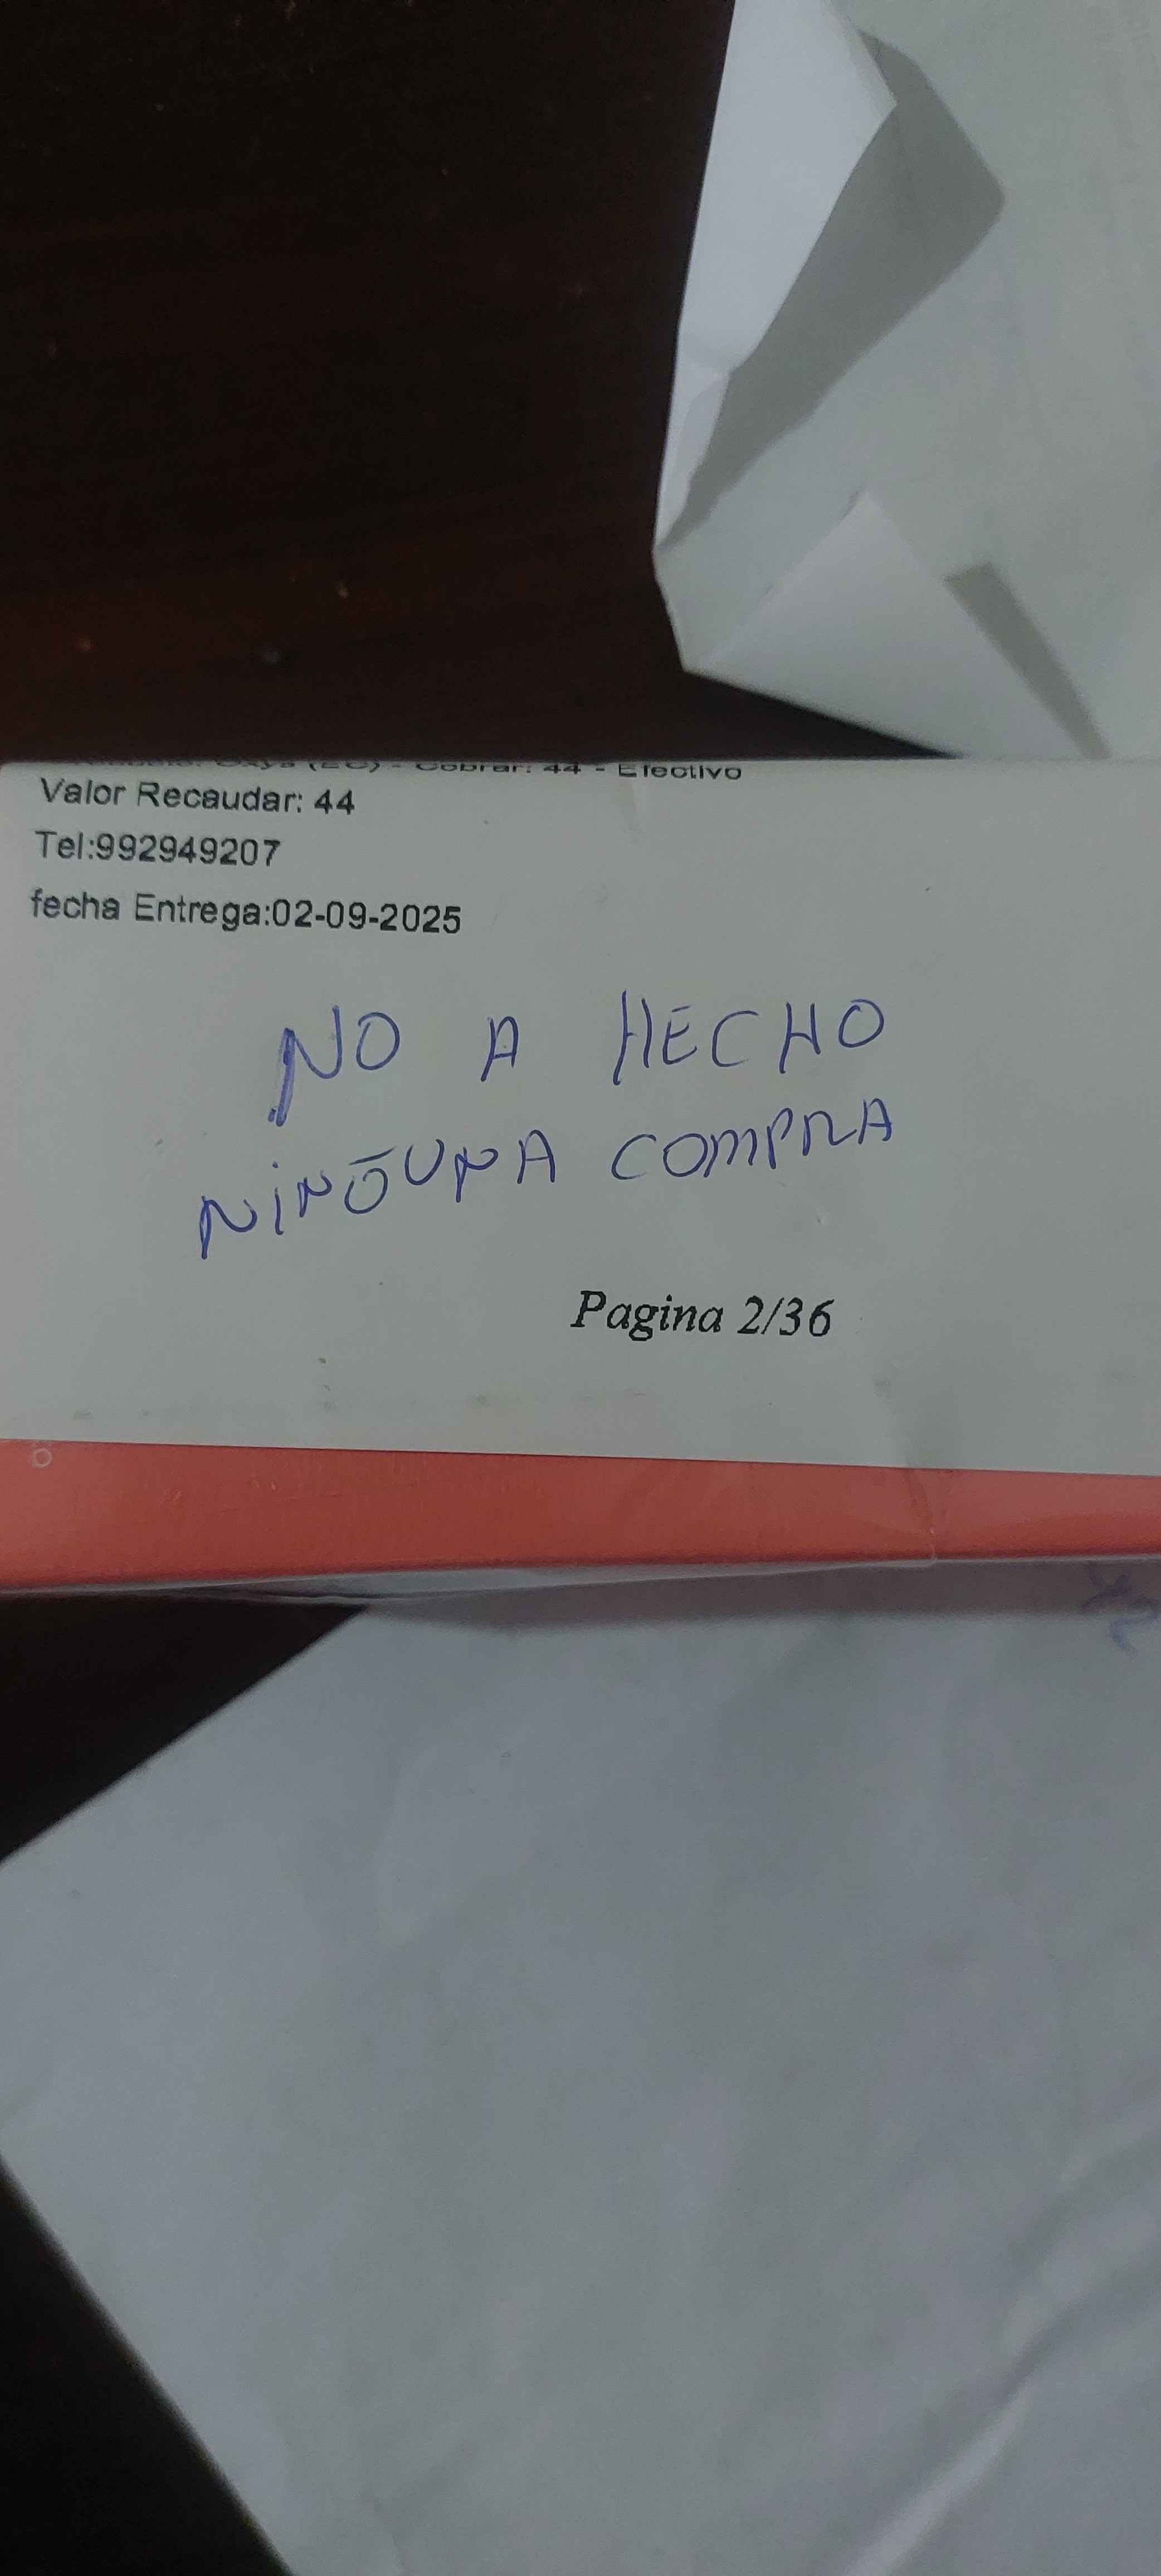 (EC) - Cobrar: 44 - Efectivo
Valor Recaudar: 44
Tel:992949207
fecha Entrega:02-09-2025
NO A HECHO
NINGUNA COMPRA
Pagina 2/36